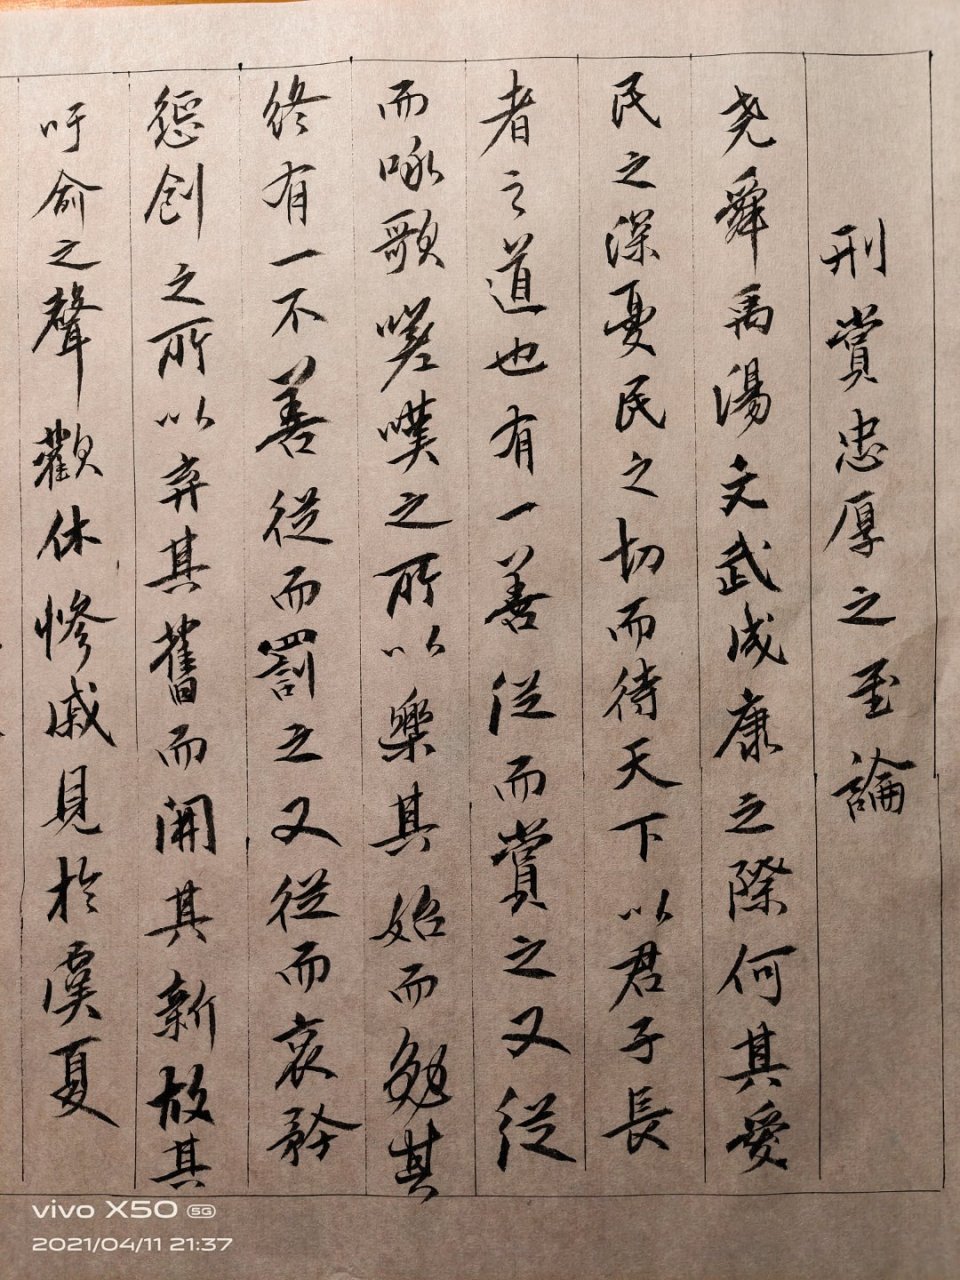 刑賞忠厚之至論
尧舜禹湯文武成康之際何其愛
民之深憂民之切而待天下以君子長
者之道也有一善從而賞之又從
而咏歌嗟嘆之所以樂其始而勉其
終有一不善從而罰之又從而哀矜
懲創之所以弃其舊而開其新故其
吁俞之聲歡休慘戚見於虞夏
vivo X50 5G
2021/04/11 21:37